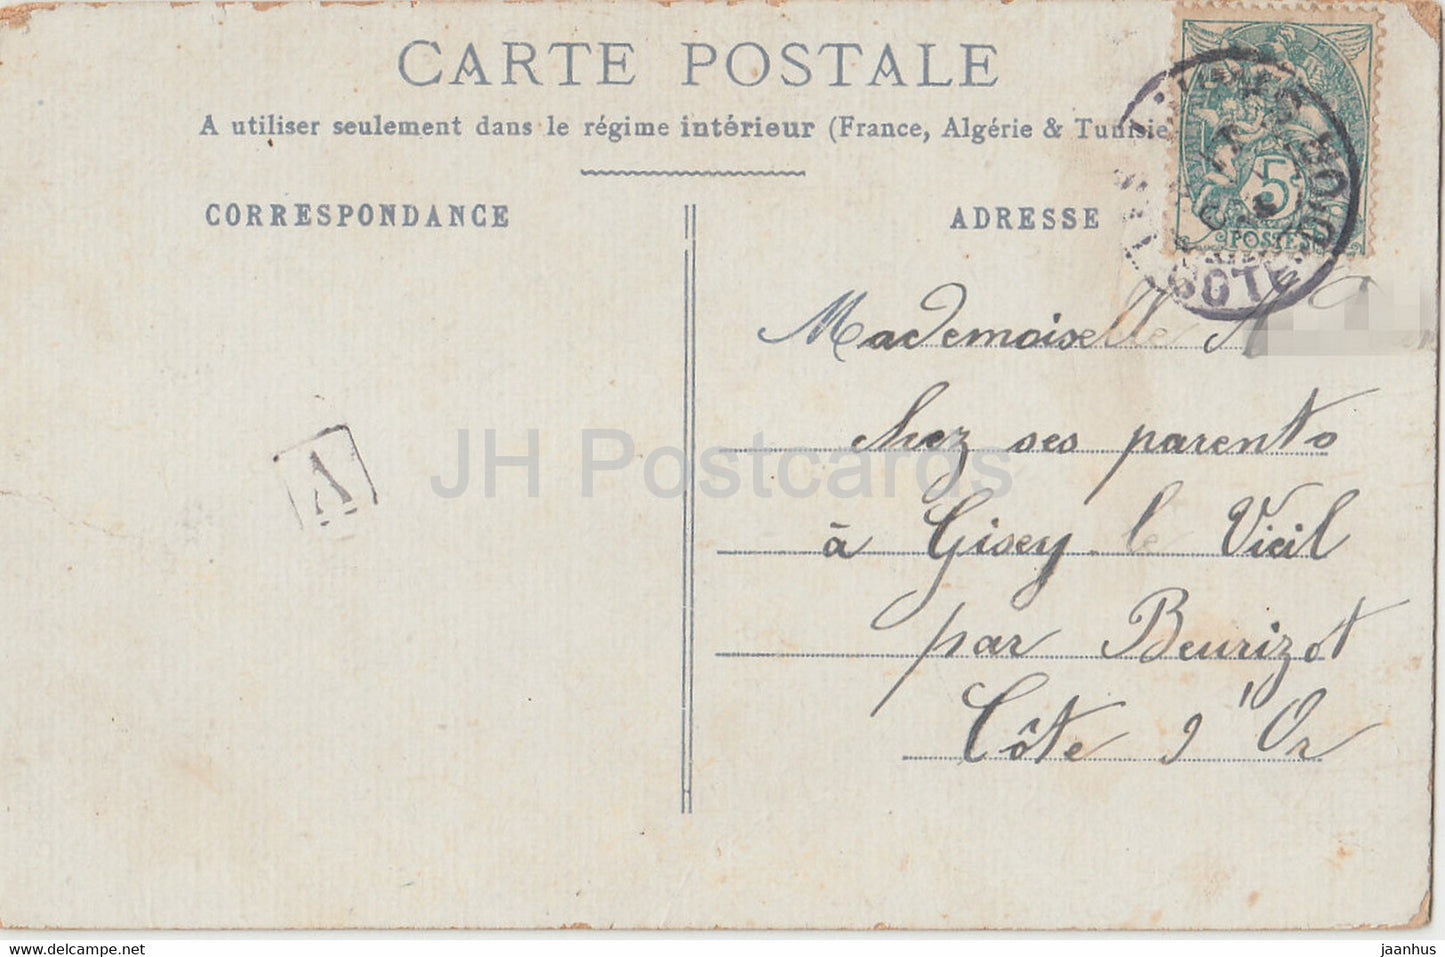 CARTE POSTALE
A utiliser seulement dans le régime intérieur (France, Algérie & Tunisie
CORRESPONDANCE
ADRESSE
5
POSTES
CÔTE D'OR
A
JH Postcards
Mademoiselle
chez ses parents
à Gisey le Vieil
par Beurizot
Côte d'Or
www.delcampe.net
jaanhus